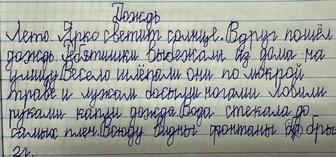 Дождь
Лето. Ярко светит солнце. Вдруг пошёл
дождь. Ребятишки выбежали из дома на
улицу. Весело шлёпали они по мокрой
траве и лужам босыми ногами. Ловили
руками капли дождя. Вода стекала до
самых плеч. Всюду видны фонтаны бры
зг.